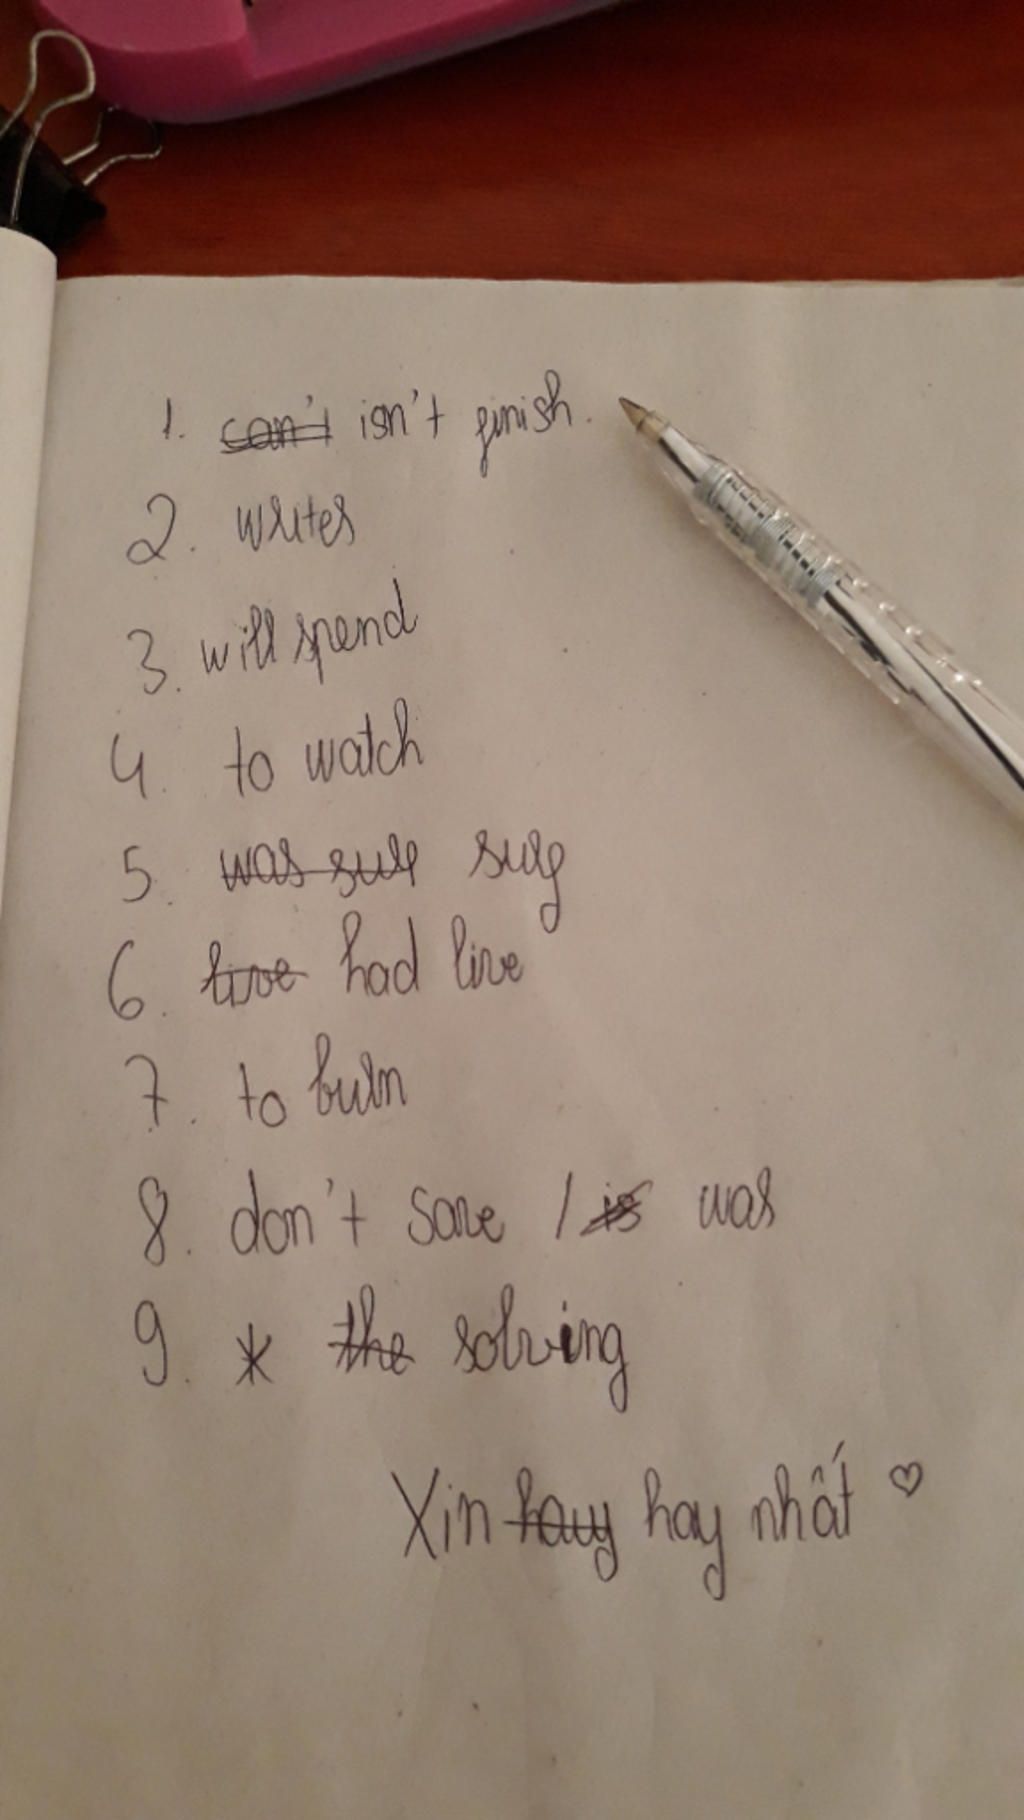 1. can't isn't finish.
2. writes
3. will spend
4. to watch
5. was sure
6. live had live
7. to burn
8. don't save / is was
9. * the solving
Xin hauy hay nhất ♡